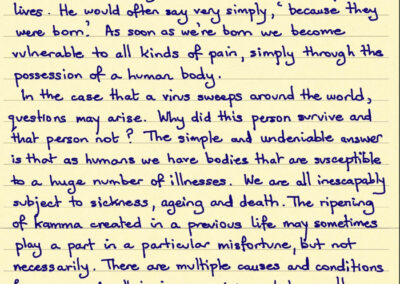 lives. He would often say very simply, ‘because they
were born.’ As soon as we're born we become
vulnerable to all kinds of pain, simply through the
possession of a human body.
In the case that a virus sweeps around the world,
questions may arise. Why did this person survive and
that person not? The simple and undeniable answer
is that as humans we have bodies that are susceptible
to a huge number of illnesses. We are all inescapably
subject to sickness, ageing and death. The ripening
of kamma created in a previous life may sometimes
play a part in a particular misfortune, but not
necessarily. There are multiple causes and conditions